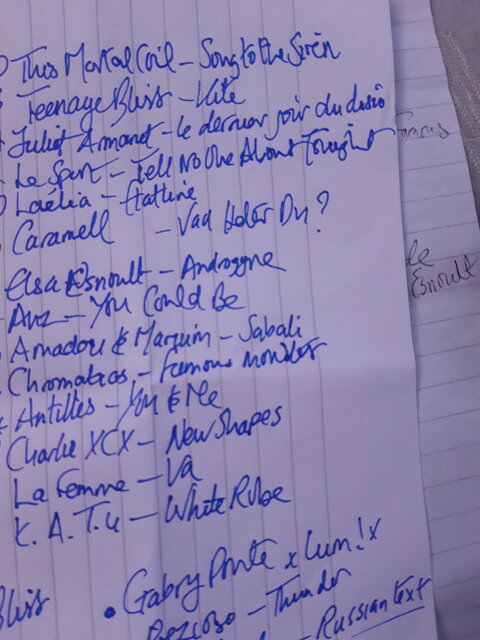 This Mortal Coil – Song to the Siren
Teenage Bliss – Kite
Juliet Armanet – le dernier jour du disco
Le Sport – Tell No One About Tonight
Laëlia –
Caramell – Vad Heter Du?
Elsa Esnoult – Androgyne
– You Could Be
Amadou & Mariam – Sabali
Chromatics – Famous Monsters
Antilles – You & Me
Charlie XCX – New Shapes
La Femme – Va
K. A. T. U – White Robe
Bliss
• Gabry Ponte x Lum!x
Prezioso – Thunder
– Russian text
Famous
le
Esnoult